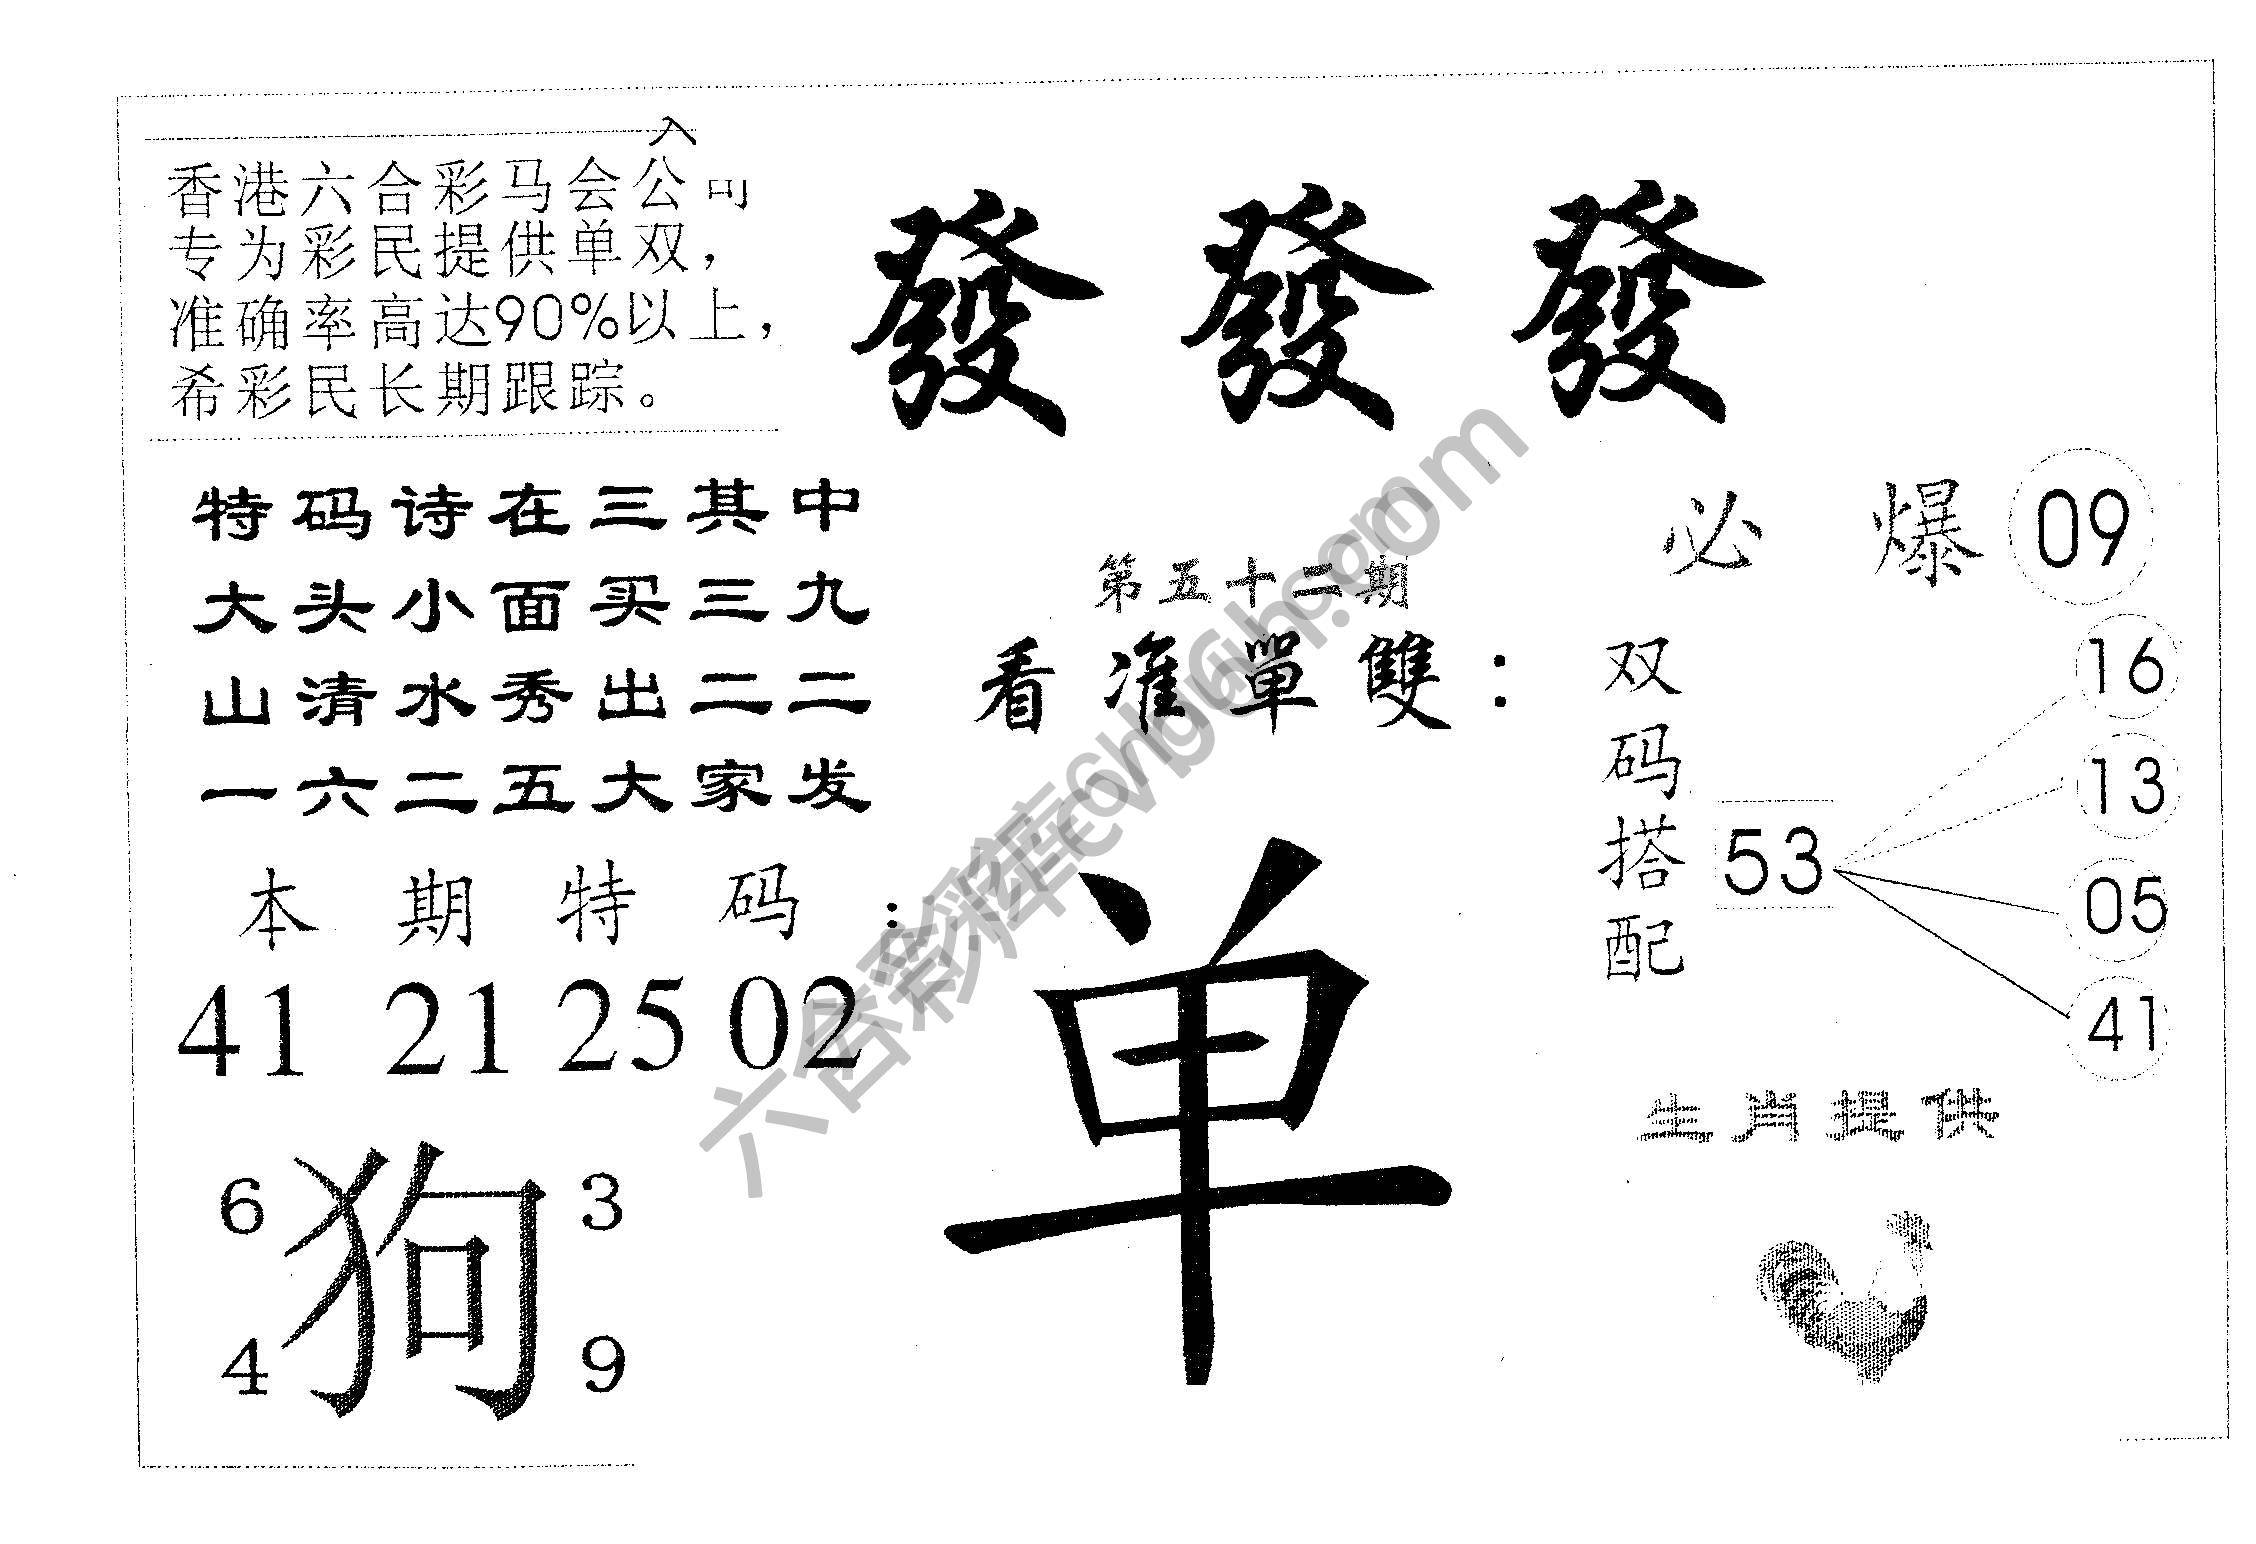 香港六合彩马会公司
专为彩民提供单双，
准确率高达90%以上，
希彩民长期跟踪。
發發發
特码诗在三其中
大头小面买三九
山清水秀出二二
一六二五大家发
本期特码：
41 21 25 02
6 狗 3
4 9
第五十二期
看准單雙：
单
必爆 09
双码搭配
53
16
13
05
41
生肖提供
六合彩库